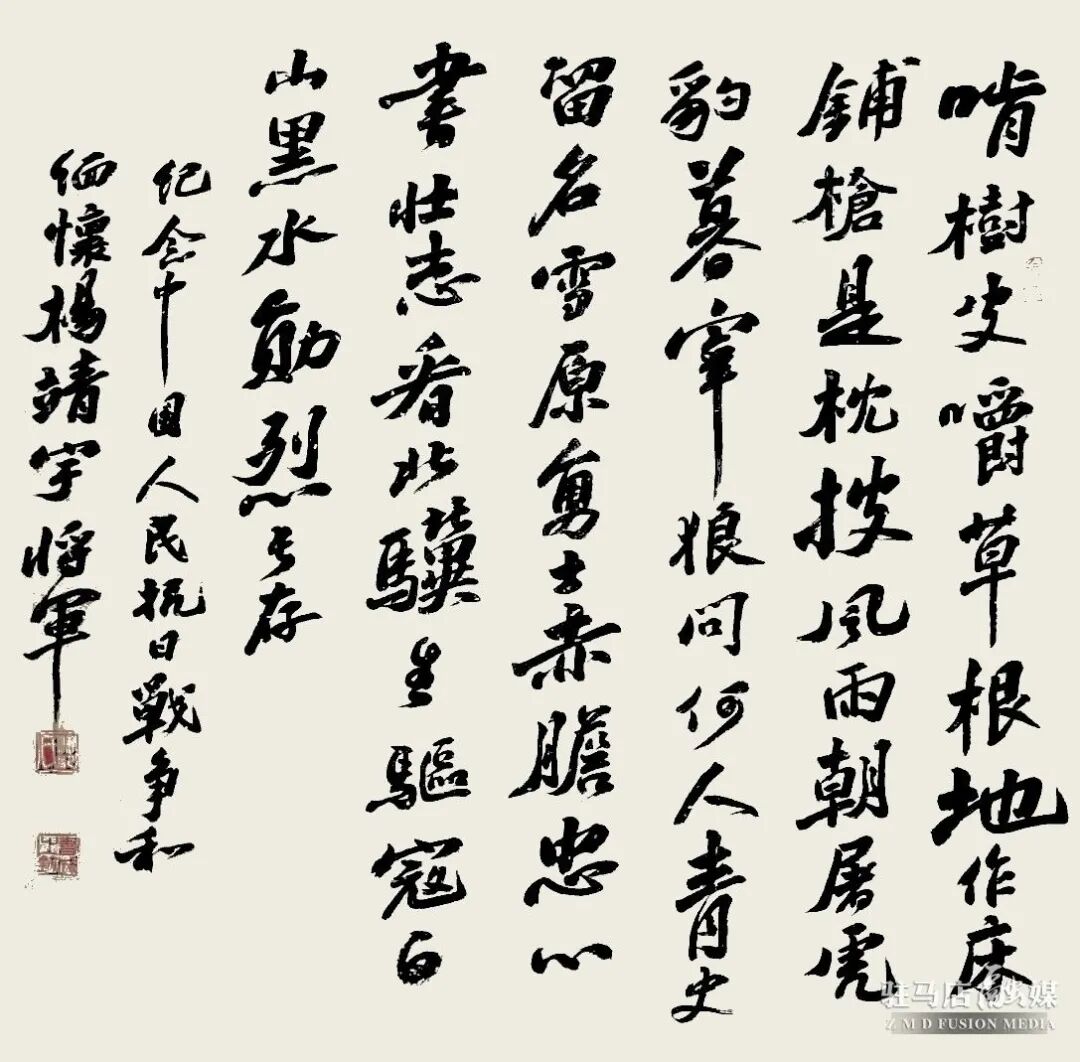 啃樹皮嚼草根地作床
鋪槍是枕披風雨朝屠虎
豹暮宰狼問何人青史
留名雪原勇士赤膽忠心
書壯志看此驥生驅寇白
山黑水勛烈长存
纪念中國人民抗日戰争和
缅懷楊靖宇將軍
驻马店融媒
Z M D FUSION MEDIA